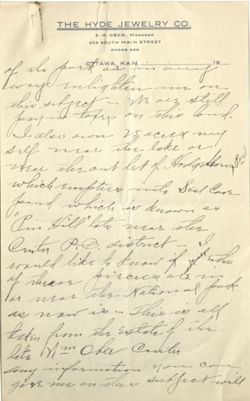 THE HYDE JEWELRY CO.
S. H. OBER, MANAGER
205 SOUTH MAIN STREET
PHONE
OTTAWA, KAN. 19
of the park and in any
way enlighten me on
this subject - We are still
paying taxes on this land.
I also own 73 acres my
self near the lake or
near the out let of Hodgdons
which empties into Seal Cove
pond which is known as
"Pin Hill" lots near the
Center P.D. district - I
would like to know if either
of these pieces are in
or near the National park
as now is - This is all
taken from the estate of the
late Wm Ober Center
Any information you can
give me on this subject will